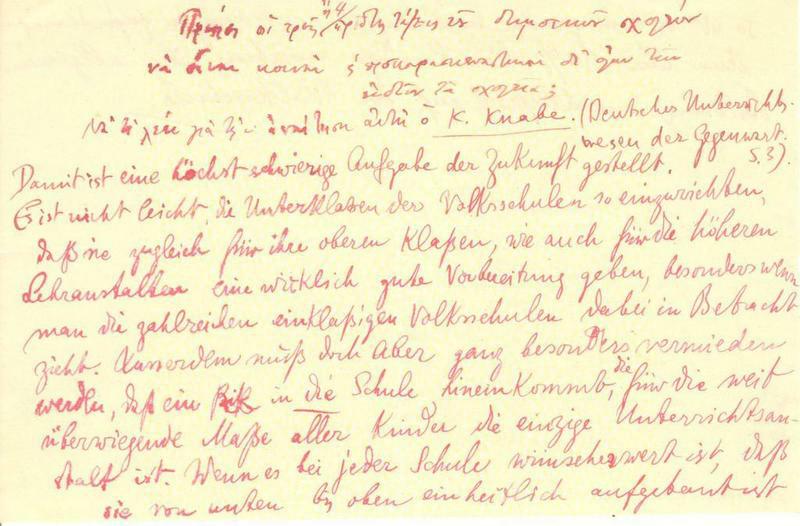 Πρέπει αἱ τρεῖς ἢ 4 πρῶται τάξεις τῶν δημοτικῶν σχολείων
νὰ εἶναι κοιναὶ προπαρασκευαστικαὶ δι' ὅλα τὰ
σχολεῖα;
Νὰ τί λέει γιὰ τὴν ἀπαίτηση αὐτὴ ὁ K. Knabe. (Deutsches Unterrichts-
wesen der Gegenwart.
S. 3).
Damit ist eine höchst schwierige Aufgabe der Zukunft gestellt.
Es ist nicht leicht, die Unterklaßen der Volksschulen so einzurichten,
daß sie zugleich für ihre oberen Klaßen, wie auch für die höheren
Lehranstalten eine wirklich gute Vorbereitung geben, besonders wenn
man die zahlreichen einklaßigen Volksschulen dabei in Betracht
zieht. Ausserdem muß doch aber ganz besonders vermieden
werden, daß ein Riß in die Schule hineinkommt, die für die weit
überwiegende Maße aller Kinder die einzige Unterrichtsan-
stalt ist. Wenn es bei jeder Schule wünschenswert ist, daß
sie von unten bis oben einheitlich aufgebaut ist